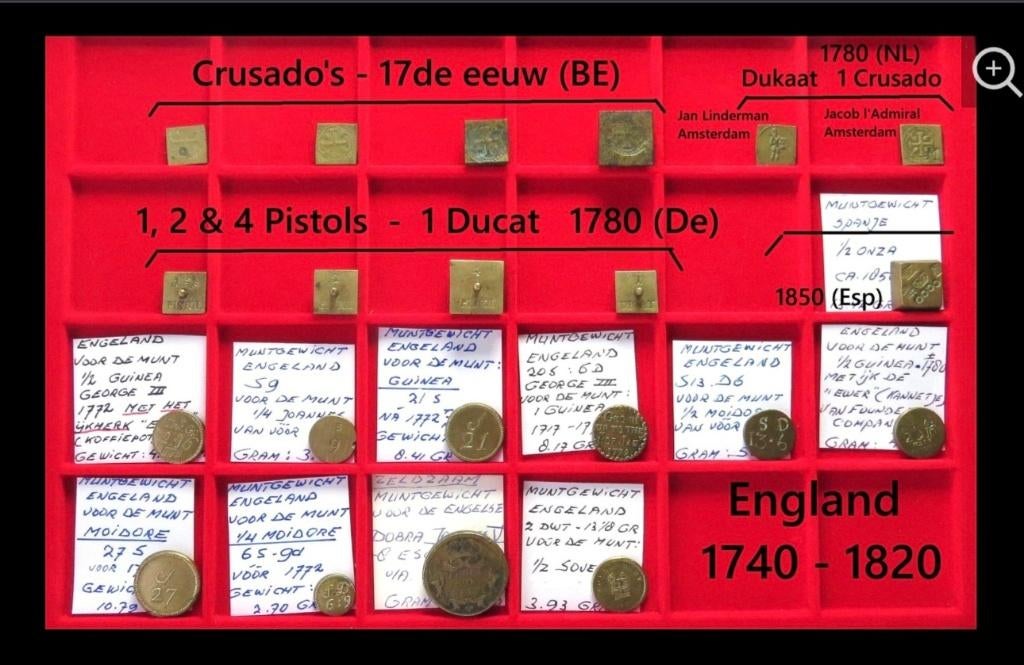 Crusado's - 17de eeuw (BE)
1780 (NL)
Dukaat 1 Crusado
Jan Linderman
Amsterdam
Jacob l'Admiral
Amsterdam
1, 2 & 4 Pistols - 1 Ducat 1780 (De)
MUNTGEWICHT
SPANJE
1/2 ONZA
CA. 185
1850 (Esp)
PISTOL
ENGELAND
VOOR DE MUNT
1/2 GUINEA
GEORGE III
1772 MET HET
IJKMERK "E
(KOFFIEPOT
GEWICHT: 4.
MUNTGEWICHT
ENGELAND
S9
VOOR DE MUNT
1/4 JOANNES
VAN VÓÓR
GRAM: 3.
9
MUNTGEWICHT
ENGELAND
VOOR DE MUNT:
GUINEA
21 S
NÁ 1772
GEWICH
8.41 GR
21
MUNTGEWICHT
ENGELAND
20S : 6D
GEORGE III
VOOR DE MUNT:
1 GUINEA
1717 - 17
8.17 GR
MUNTGEWICHT
ENGELAND
S13. D6
VOOR DE MUNT
1/2 MOIDOR
VAN VOOR
GRAM: 5
S D
13·6
ENGELAND
VOOR DE MUNT
1/2 GUINEA ± 1780
MET IJK DE
"EWER" (KANNETJE
VAN FOUNDE
COMPAN
GRAM:
MUNTGEWICHT
ENGELAND
VOOR DE MUNT
MOIDORE
27 S
VOOR 17
GEWIC
10.79
27
MUNTGEWICHT
ENGELAND
VOOR DE MUNT
1/4 MOIDORE
6S - 9d
VÓÓR 1772
GEWICHT:
2.70 GR
6 9
ZELDZAAM
MUNTGEWICHT
VOOR DE ENGELSE
DOBRA
8 ESC
V/A.
GRAM
MUNTGEWICHT
ENGELAND
2 DWT - 13 1/8 GR
VOOR DE MUNT:
1/2 SOVE
3.93 GRAM
England
1740 - 1820